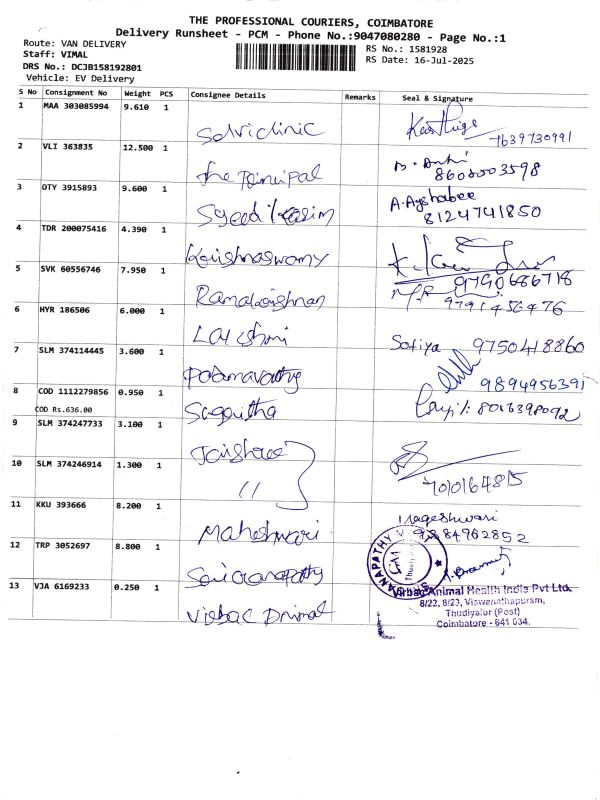 THE PROFESSIONAL COURIERS, COIMBATORE
Delivery Runsheet - PCM - Phone No.:9047080280 - Page No.:1
Route: VAN DELIVERY
Staff: VIMAL
DRS No.: DCJB158192801
Vehicle: EV Delivery
RS No.: 1581928
RS Date: 16-Jul-2025
S No Consignment No Weight PCS Consignee Details Remarks Seal & Signature
1 MAA 303085994 9.610 1
Selviclinic
7639730991
2 VLI 363835 12.500 1
The Principal
8608003598
3 OTY 3915893 9.600 1
Syeed Kasim A. Ayshabee
8124741850
4 TDR 200075416 4.390 1
Krishnaswamy
9790686718
5 SVK 60556746 7.950 1
Ramakrishnan
6 HYR 186506 6.000 1
Lakshmi Sofiya 9750418860
7 SLM 374114445 3.600 1
Padmavathy 9894956391
8 COD 1112279856 0.950 1
COD Rs.636.00
Sugantha 8016398092
9 SLM 374247733 3.100 1
Jaishree
10 SLM 374246914 1.300 1
"
7010164815
11 KKU 393666 8.200 1
Maheshwari
9884962852
12 TRP 3052697 8.800 1
13 VJA 6169233 0.250 1
Virbac Animal
Virbac Animal Health India Pvt Ltd.
8/22, 8/23, Viswanathapuram,
Thudiyalur (Post)
Coimbatore - 641 034.